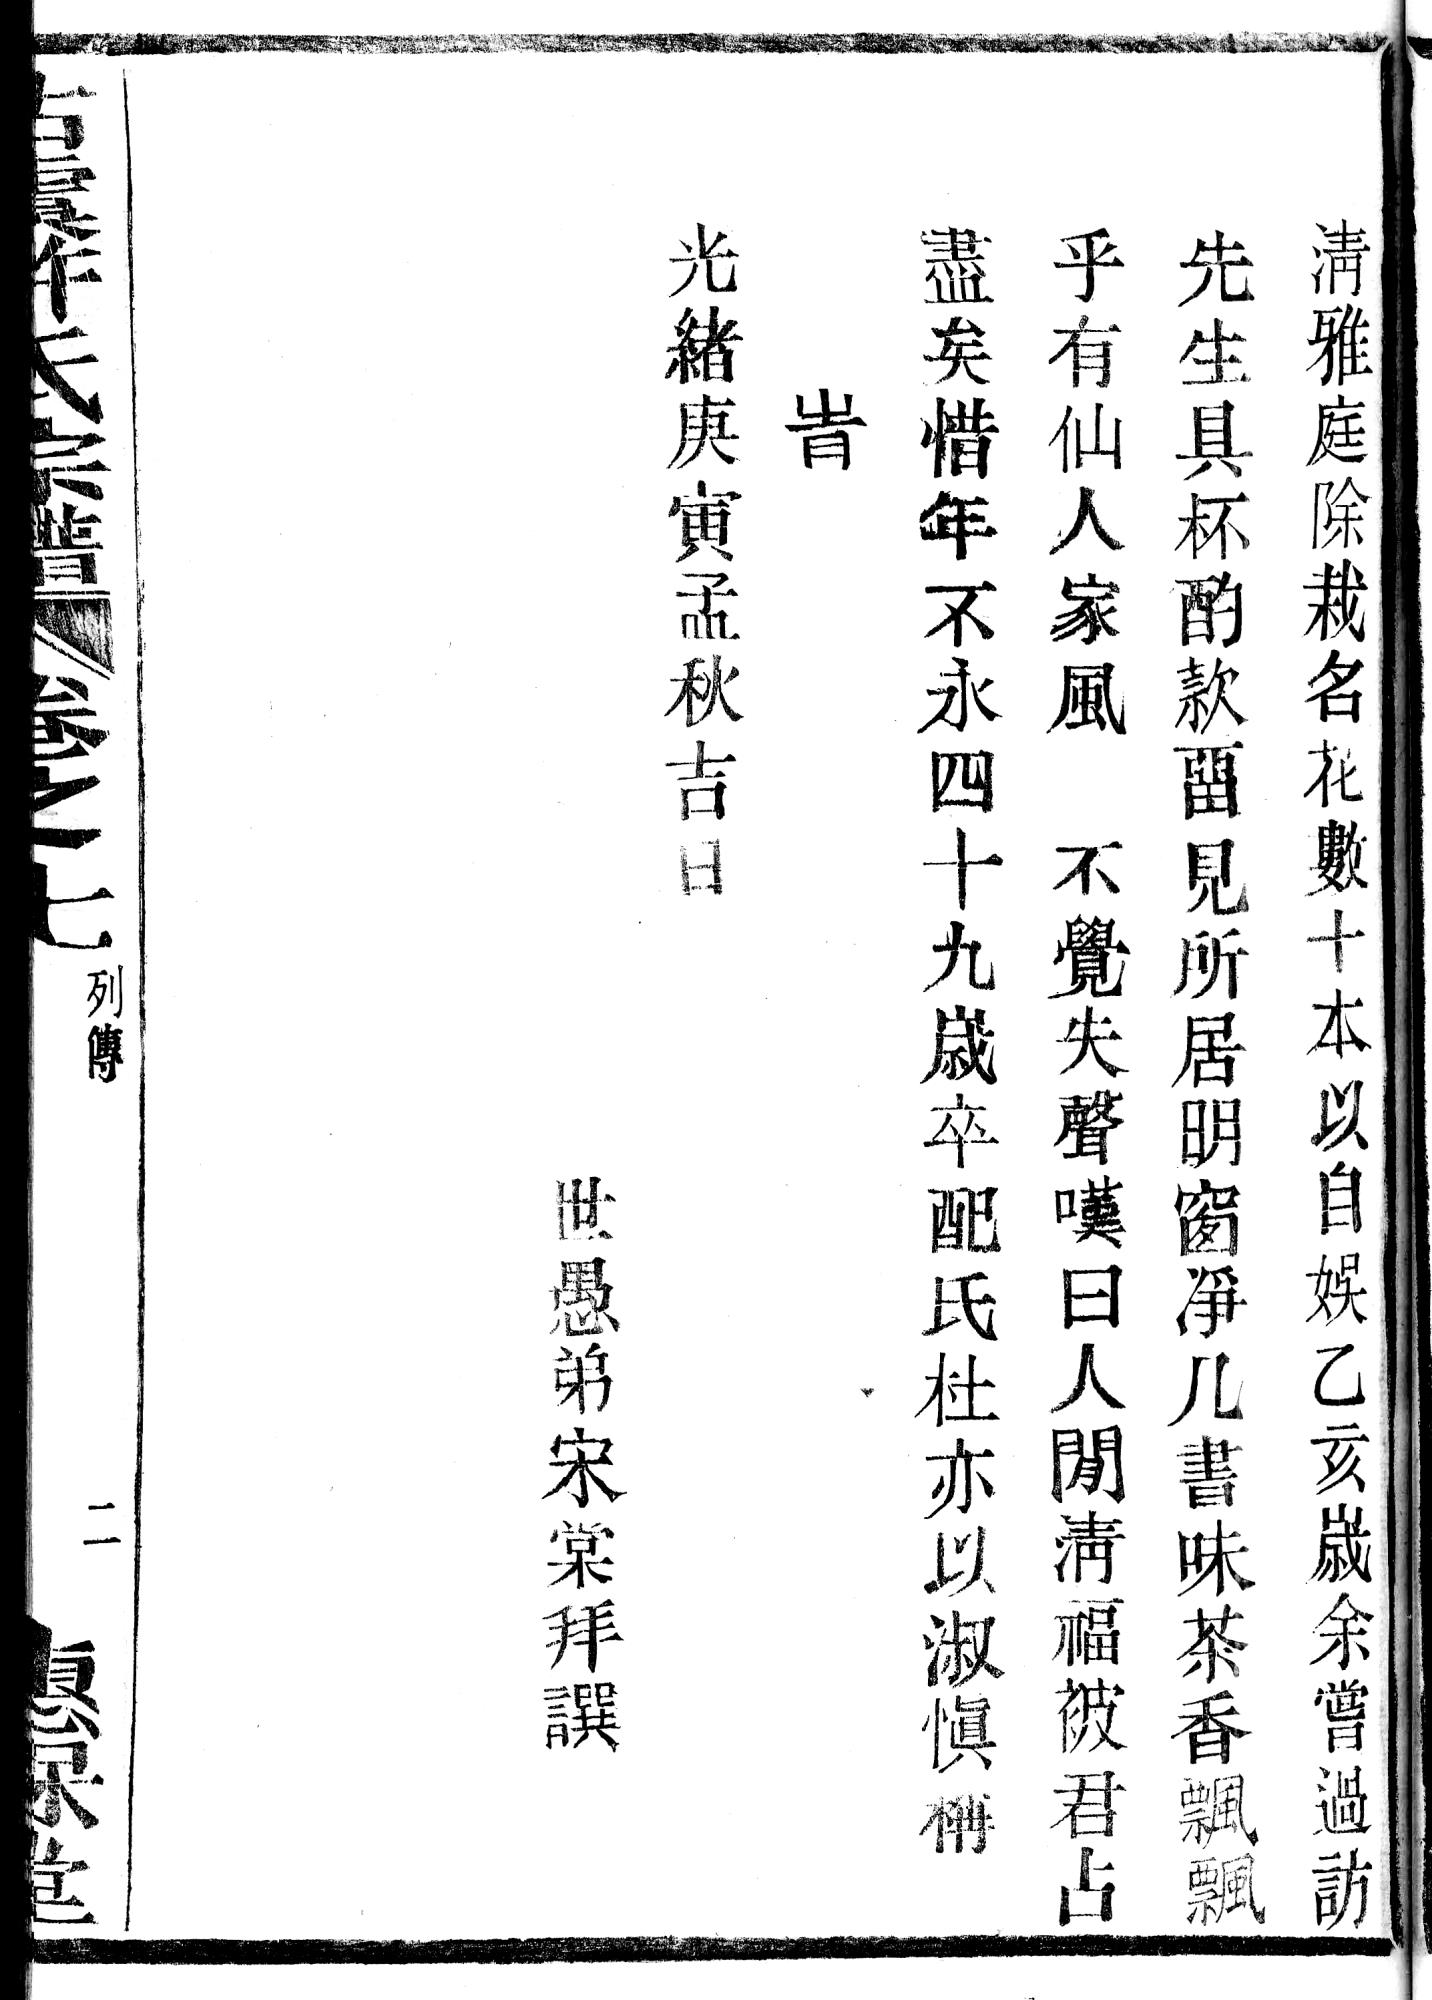 淸雅庭除栽名花數十本以自娛乙亥歲余嘗過訪
先生具杯酌款畱見所居明窗凈几書味茶香飄飄
乎有仙人家風　不覺失聲嘆曰人閒淸福被君占
盡矣惜年不永四十九歲卒配氏杜亦以淑愼稱
旹
光緒庚寅孟秋吉日
世愚弟宋棠拜譔
氏宗譜
卷之七
列傳
二
堂